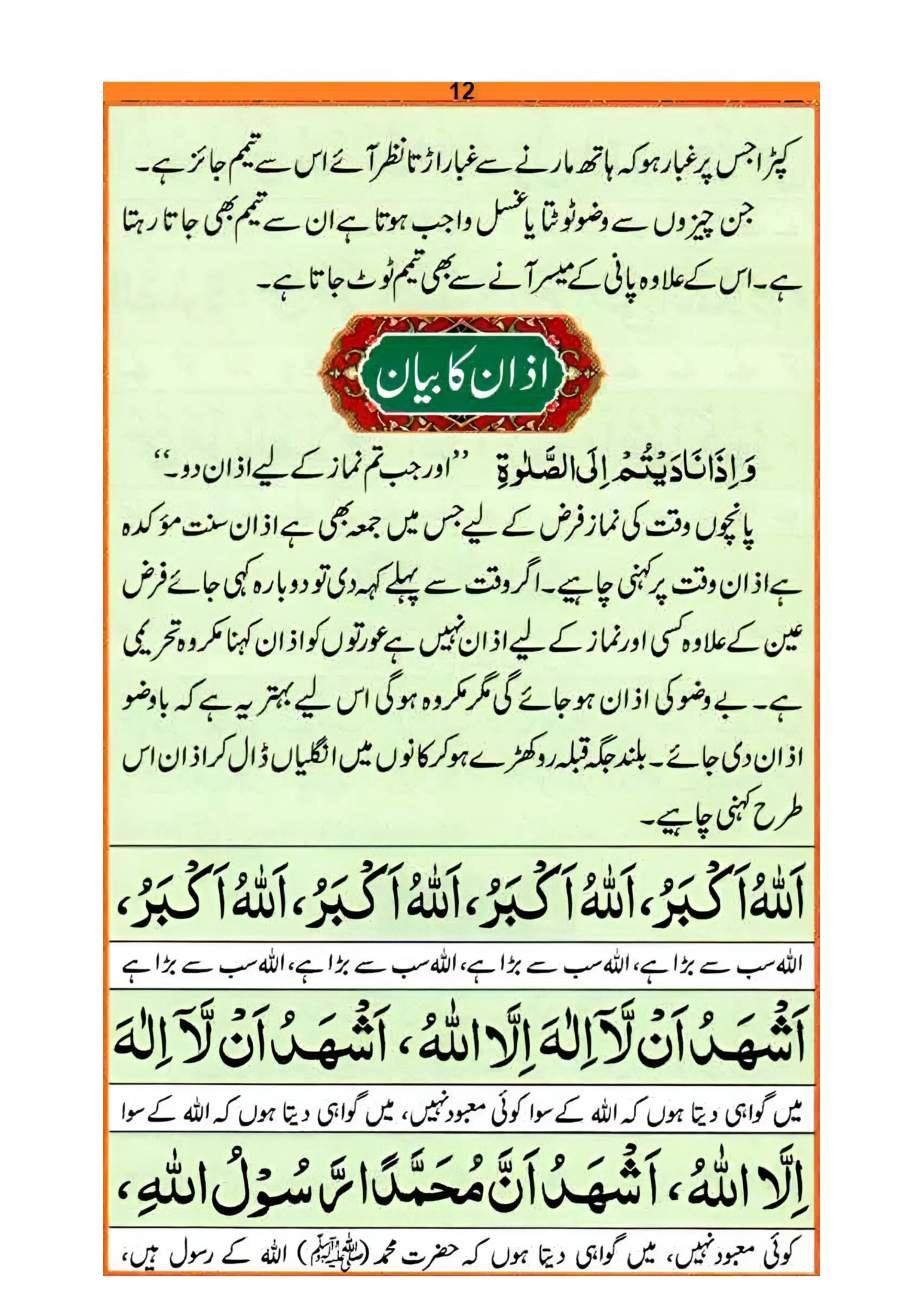 12
کپڑا جس پر غبار ہو کہ ہاتھ مارنے سے غبار اڑتا نظر آئے اس سے تیمم جائز ہے۔
جن چیزوں سے وضو ٹوٹتا یا غسل واجب ہوتا ہے ان سے تیمم بھی جاتا رہتا
ہے۔ اس کے علاوہ پانی کے میسر آنے سے بھی تیمم ٹوٹ جاتا ہے۔
اذان کا بیان
وَاِذَا نَادَيْتُمْ اِلَى الصَّلٰوةِ ”اور جب تم نماز کے لیے اذان دو۔“
پانچوں وقت کی نماز فرض کے لیے جس میں جمعہ بھی ہے اذان سنت مؤکدہ
ہے اذان وقت پر کہنی چاہیے۔ اگر وقت سے پہلے کہہ دی تو دوبارہ کہی جائے فرض
عین کے علاوہ کسی اور نماز کے لیے اذان نہیں ہے عورتوں کو اذان کہنا مکروہ تحریمی
ہے۔ بے وضو کی اذان ہو جائے گی مگر مکروہ ہوگی اس لیے بہتر یہ ہے کہ باوضو
اذان دی جائے۔ بلند جگہ قبلہ رو کھڑے ہو کر کانوں میں انگلیاں ڈال کر اذان اس
طرح کہنی چاہیے۔
اَللّٰهُ اَكْبَرُ، اَللّٰهُ اَكْبَرُ، اَللّٰهُ اَكْبَرُ، اَللّٰهُ اَكْبَرُ،
اللہ سب سے بڑا ہے، اللہ سب سے بڑا ہے، اللہ سب سے بڑا ہے، اللہ سب سے بڑا ہے
اَشْهَدُ اَنْ لَّآ اِلٰهَ اِلَّا اللّٰهُ، اَشْهَدُ اَنْ لَّآ اِلٰهَ
میں گواہی دیتا ہوں کہ اللہ کے سوا کوئی معبود نہیں، میں گواہی دیتا ہوں کہ اللہ کے سوا
اِلَّا اللّٰهُ، اَشْهَدُ اَنَّ مُحَمَّدًا رَّسُوْلُ اللّٰهِ،
کوئی معبود نہیں، میں گواہی دیتا ہوں کہ حضرت محمد (ﷺ) اللہ کے رسول ہیں،